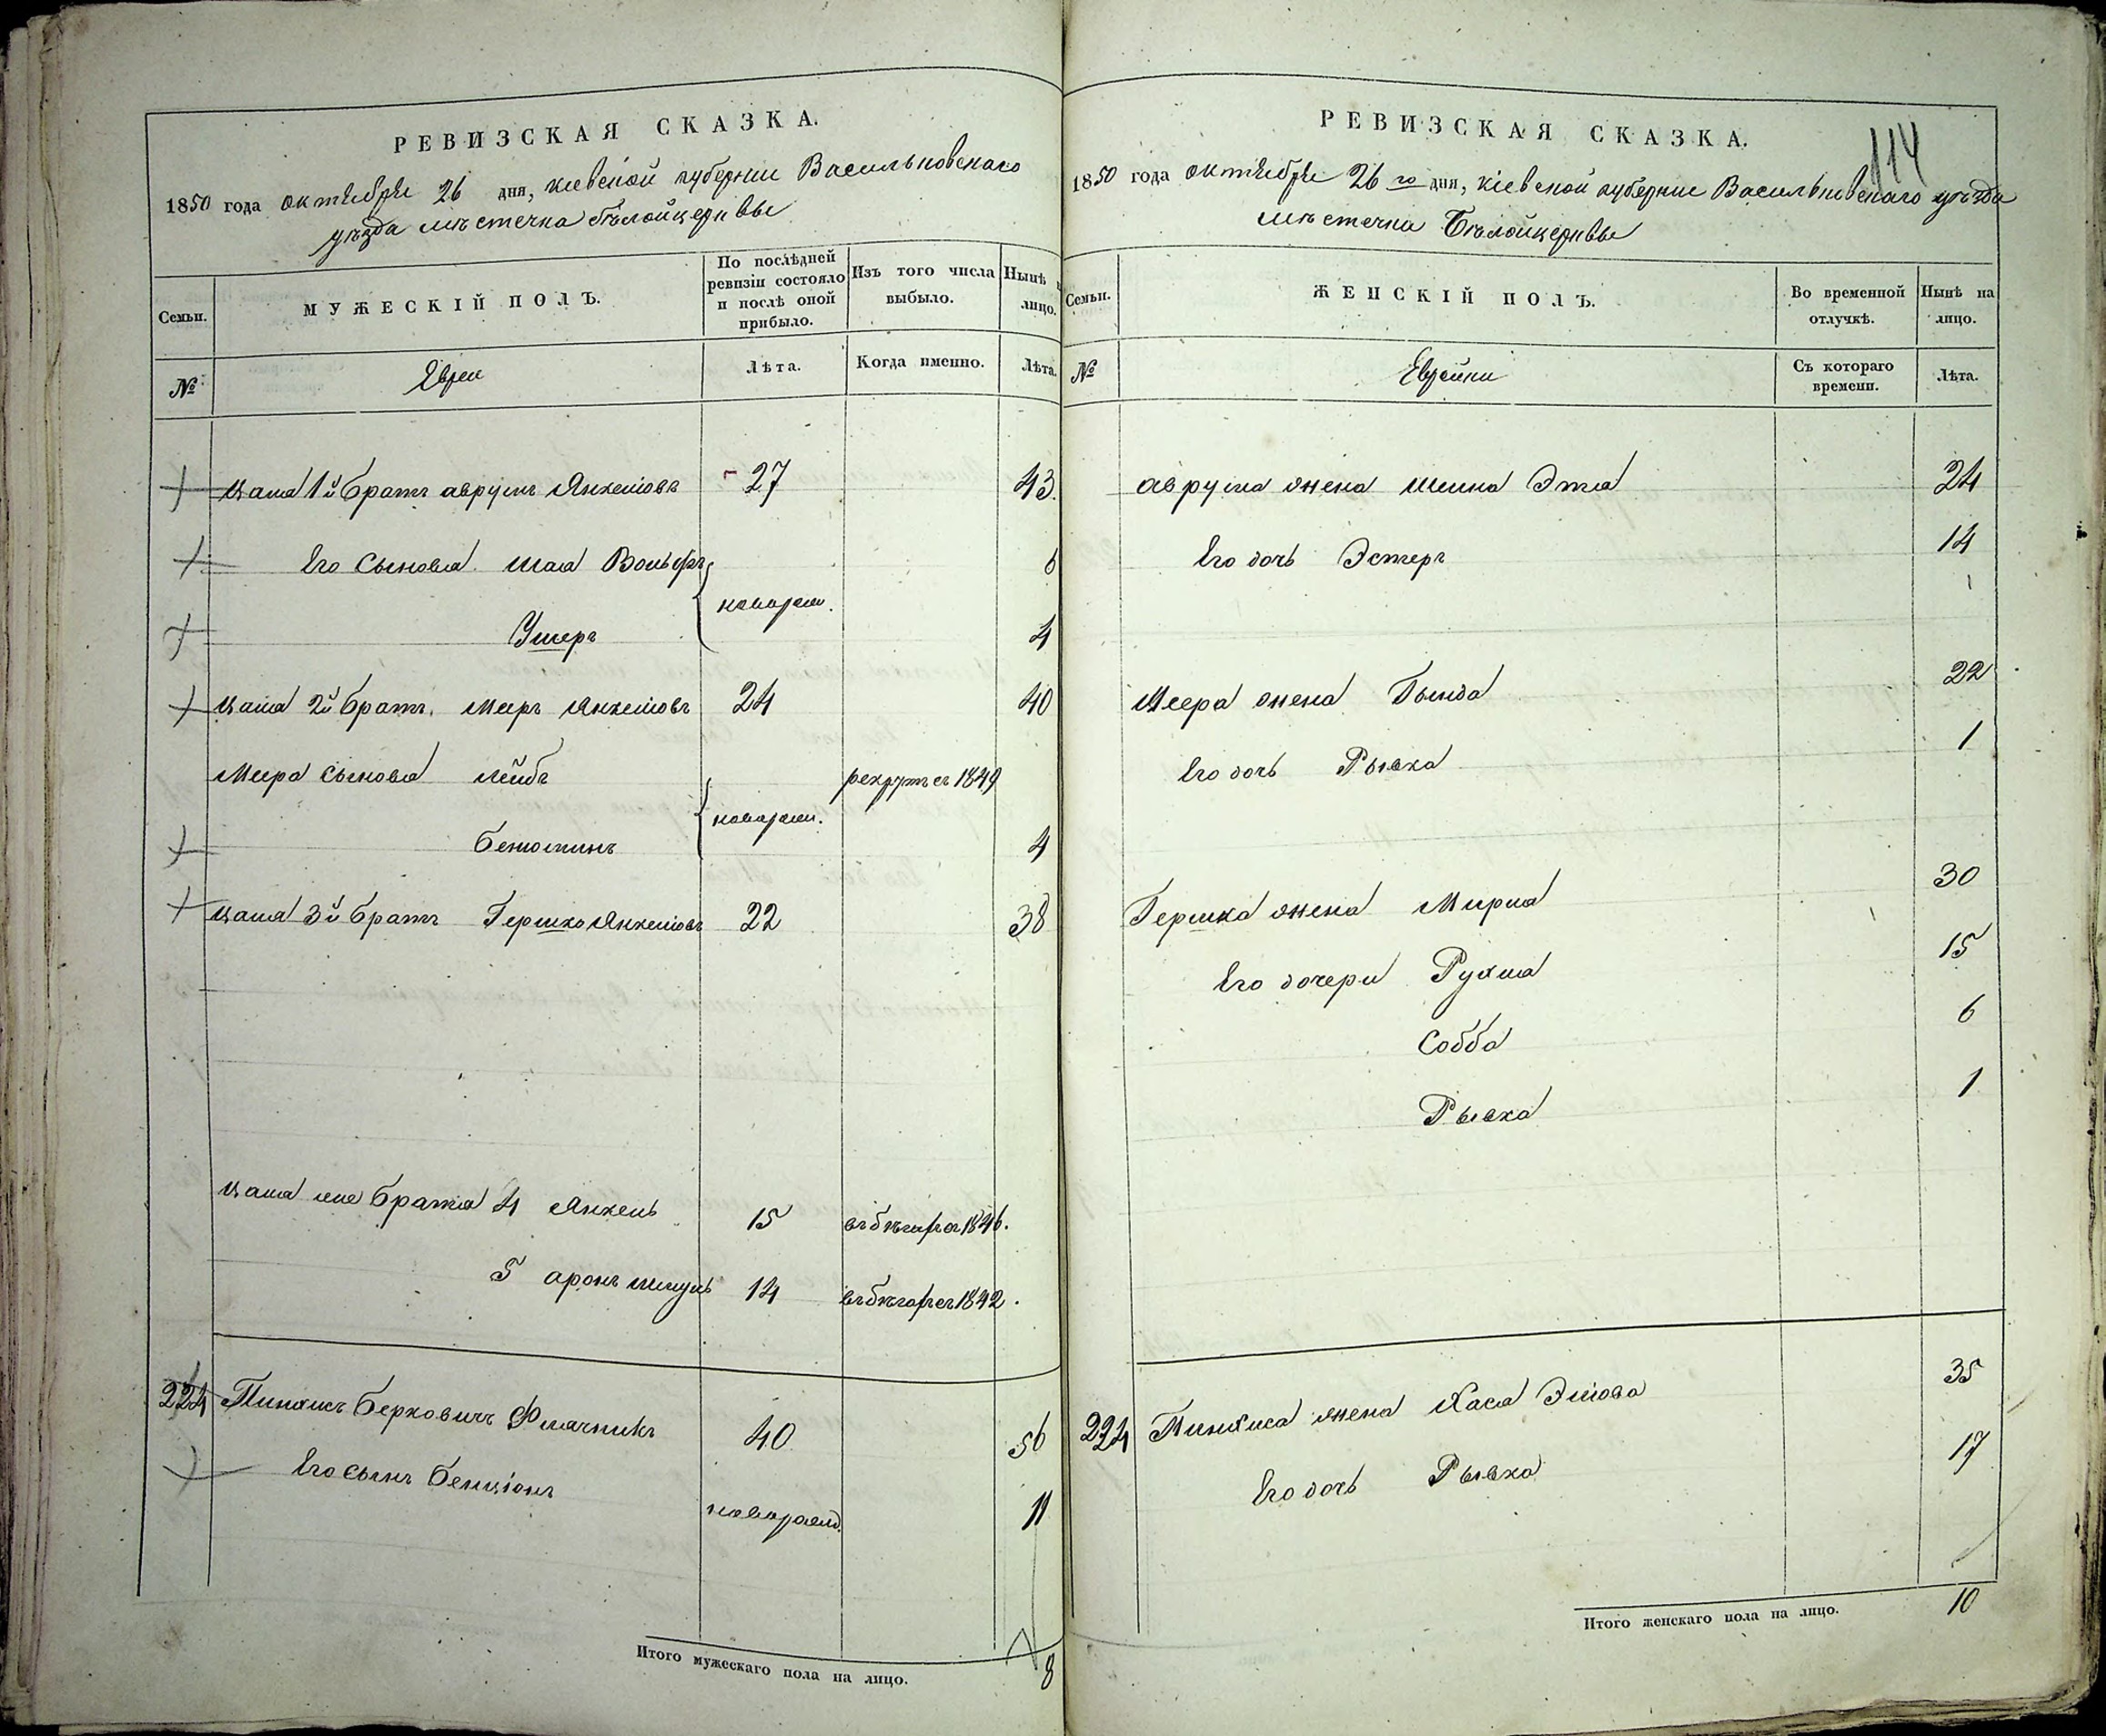 РЕВИЗСКАЯ СКАЗКА.
1850 года октября 26 дня, кіевской губерніи Васильковскаго
уѣзда мѣстечка Бѣлойцеркви
Семьи.
МУЖЕСКІЙ ПОЛЪ.
По послѣдней ревизіи состояло и послѣ оной прибыло.
Изъ того числа выбыло.
Нынѣ лицо.
№
Евреи
Лѣта.
Когда именно.
Лѣта.
1й братъ аврумъ Янкелювъ 27 43.
Его сыновья Шая Вольфъ 6
новорож.
Ушеръ 4
2й братъ. Меръ Янкелювъ 24 40
Меера сыновья Лейбъ рекрутъ съ 1849
новорож.
Бенюминъ 4
3й братъ Гершко Янкелювъ 22 38
братья 4 Янкель 15 въ бѣгахъ съ 1846.
5 аронъ шмуль 14 въ бѣгахъ съ 1842.
224 Пинхасъ Берковичъ 40 56
Его сынъ Бенціонъ новорожд. 11
Итого мужескаго пола на лицо. 8
РЕВИЗСКАЯ СКАЗКА.
114
1850 года октября 26 го дня, кіевской губерніи Васильковскаго уѣзда
мѣстечка Бѣлойцеркви
Семьи.
ЖЕНСКІЙ ПОЛЪ.
Во временной отлучкѣ.
Нынѣ на лицо.
№
Еврейки
Съ котораго времени.
Лѣта.
аврума жена Шейна Этля 24
Его дочь Эстеръ 14
Меера жена Гинда 22
Его дочь Рывка 1
Гершка жена Мирля 30
Его дочери Рухля 15
Собба 6
Рывка 1
224 Пинхаса жена Хася 35
Его дочь Рывка 17
Итого женскаго пола на лицо. 10